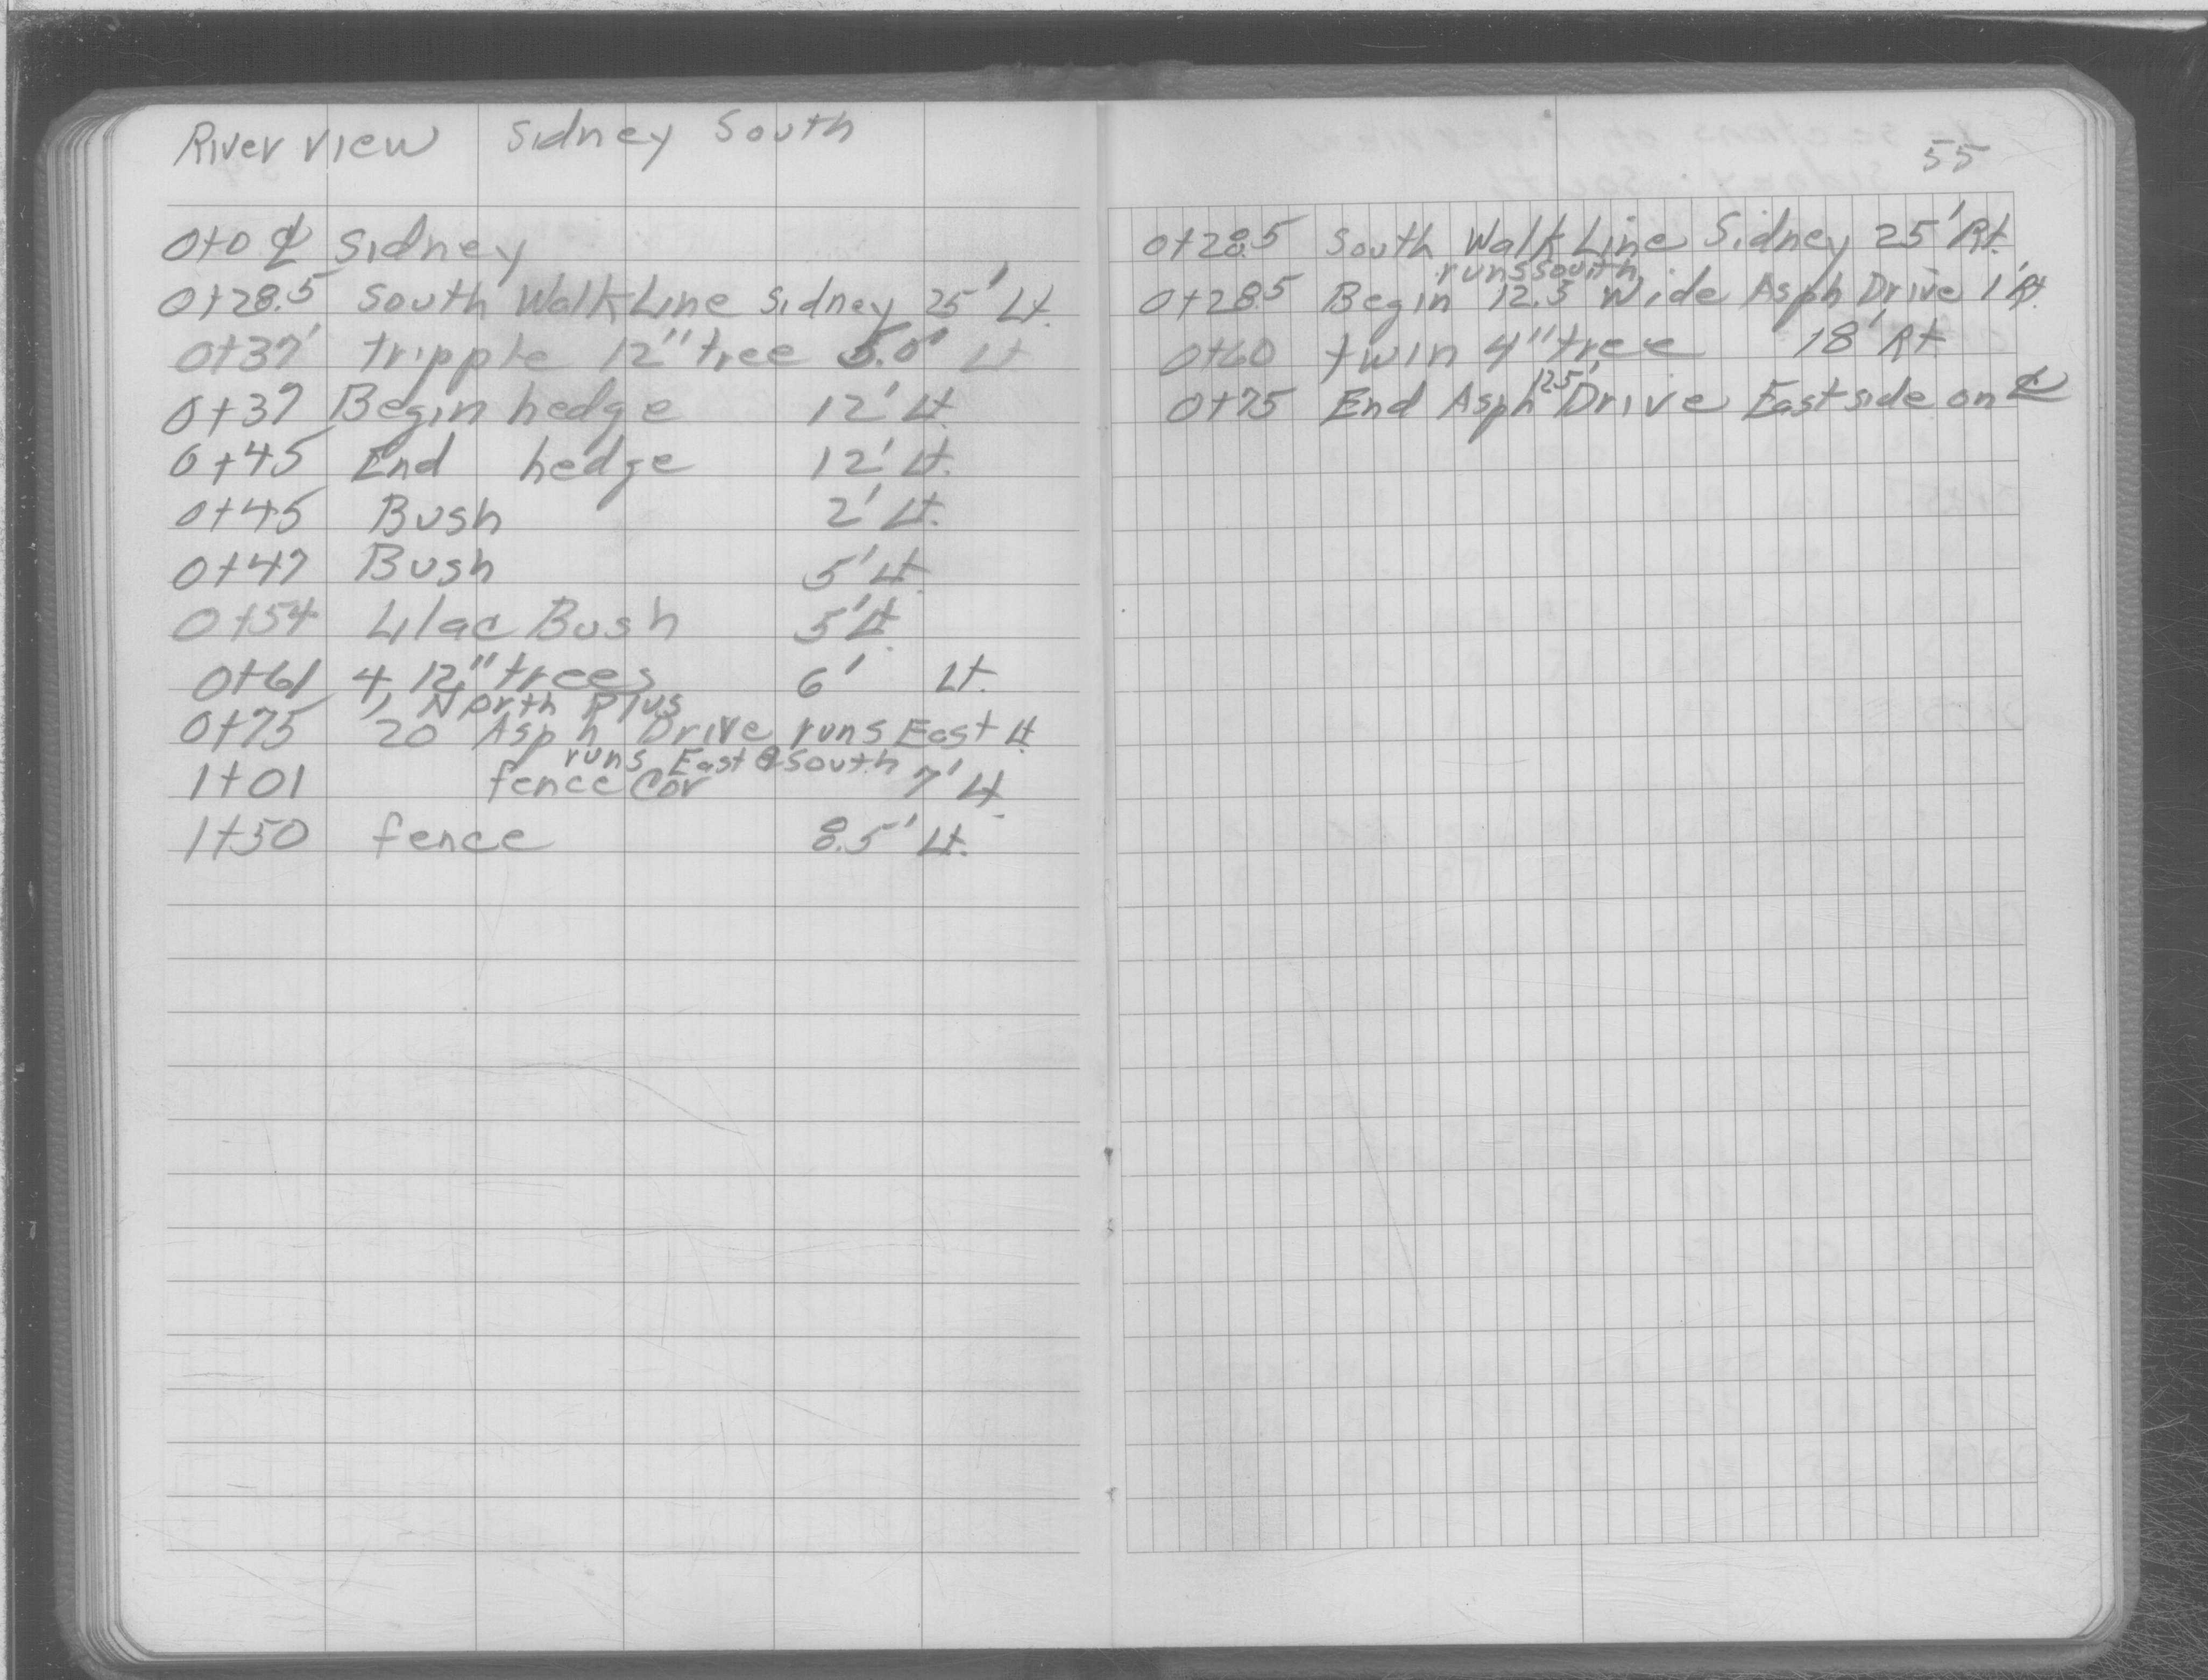 River view Sidney South
0+0 ℄ Sidney
0+28.5 South Walk Line Sidney 25' Lt.
0+37' tripple 12" tree 5.0' Lt
0+37 Begin hedge 12' Lt.
0+45 End hedge 12' Lt.
0+45 Bush 2' Lt.
0+47 Bush 5' Lt.
0+54 Lilac Bush 5' Lt.
0+61 4, 12" trees 6' Lt.
North Plus
0+75 20 Asph Drive runs East Lt.
runs East & South
1+01 fence Cor 7' Lt.
1+50 fence 8.5' Lt.
55
0+28.5 South Walk Line Sidney 25' Rt.
runs south
0+28.5 Begin 12.5 Wide Asph Drive 1' Rt.
0+60 twin 4" tree 18' Rt
12.5'
0+75 End Asph Drive East side on ℄